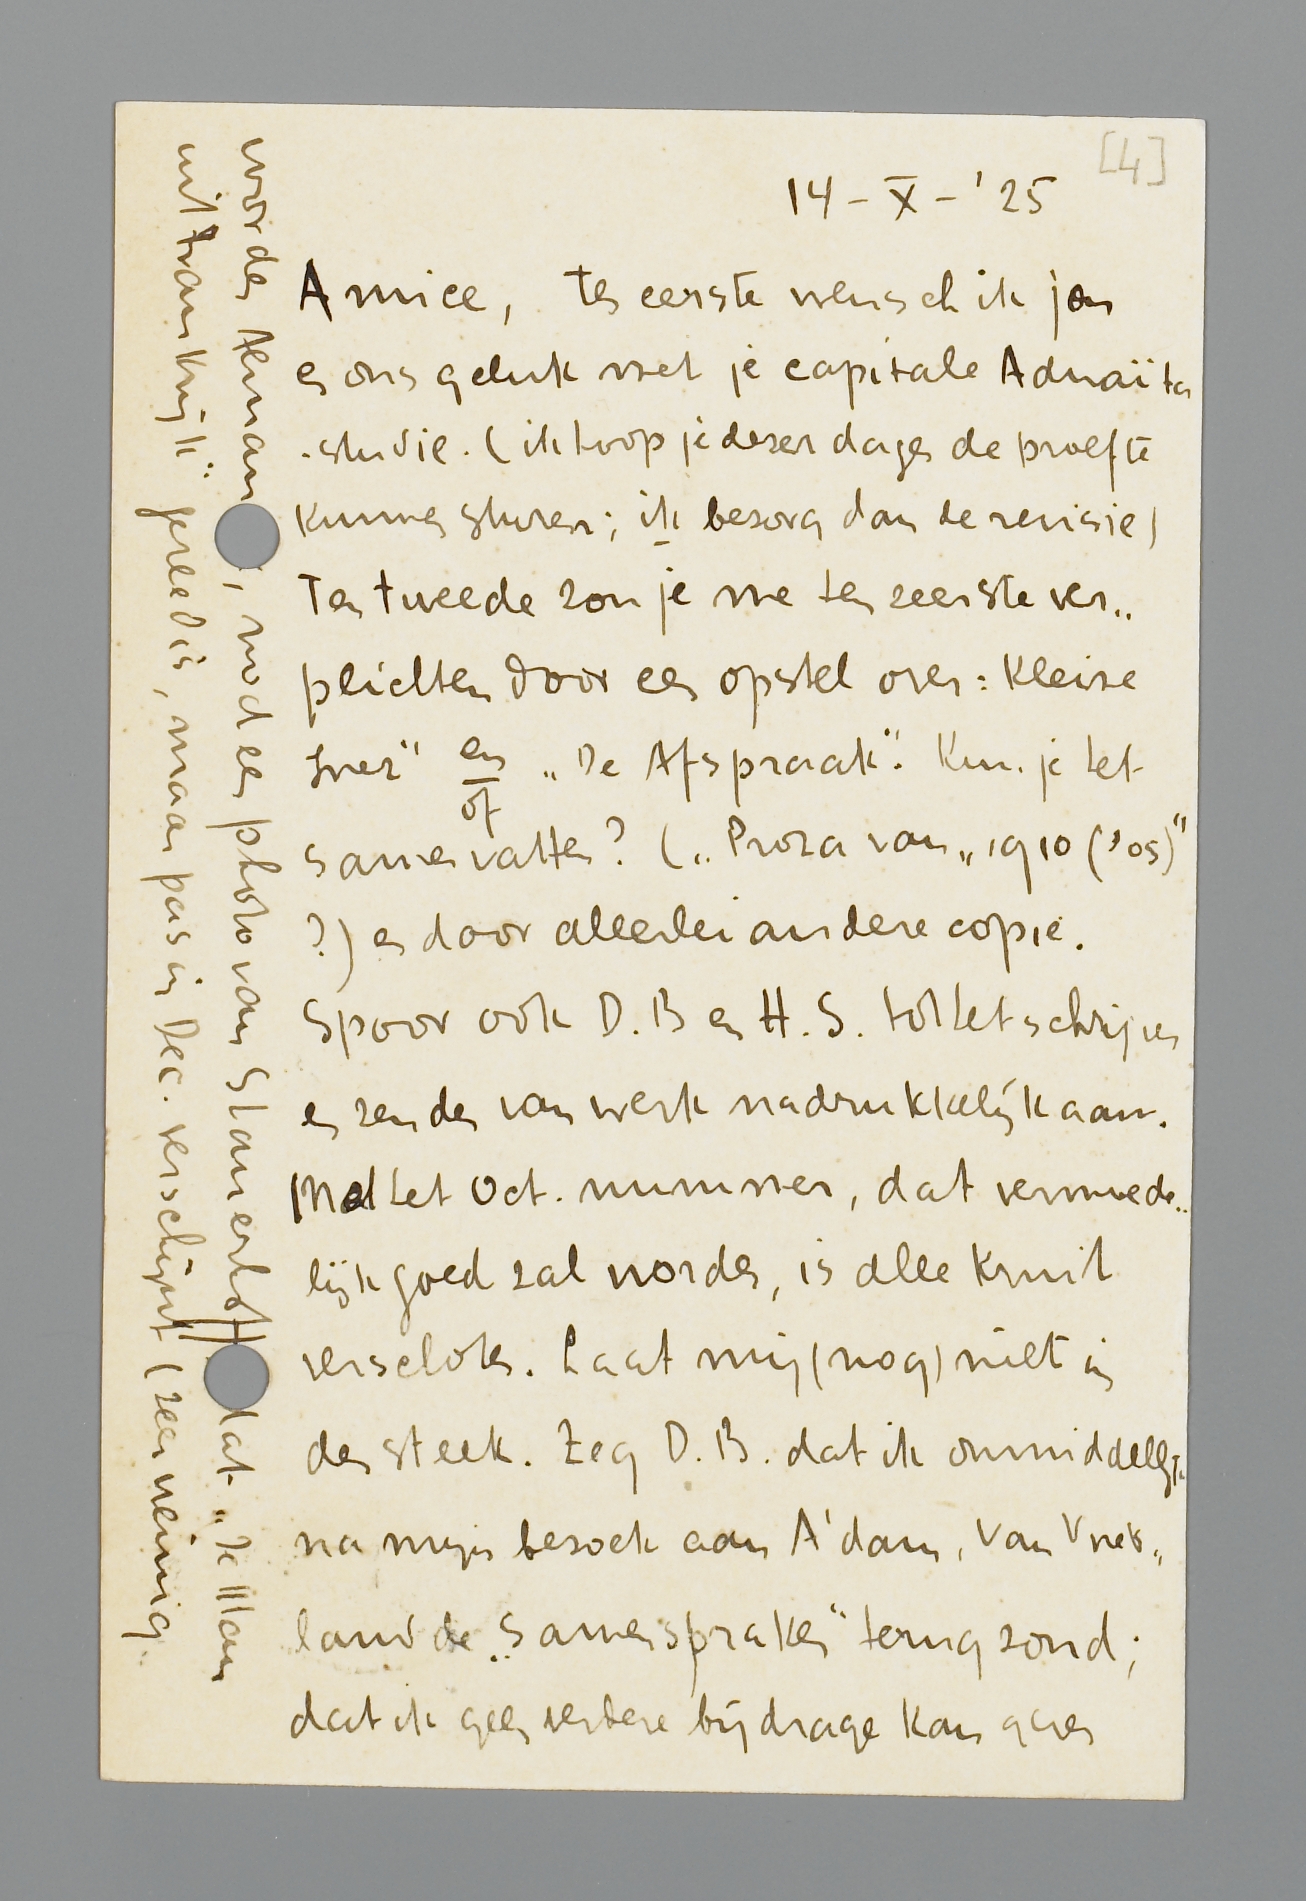 [4]
14 - X - '25
Amice, ten eerste wensch ik jou
en ons geluk met je capitale Adwaïta
-studie. (ik hoop je dezer dagen de proef te
kunnen sturen; ik bezorg dan de revisie)
Ten tweede zou je me ten zeerste ver„
plichten door een opstel over: Kleine
Inez" en „De Afspraak". Kun je het
of
samenvatten? („Proza van „1910 ('05)"
?) en door allerlei andere copie.
Spoor ook D.B en H.S. tot het schrijven
en zenden van werk nadrukkelijk aan.
Met het Oct. nummer, dat vermoede„
lijk goed zal worden, is alle kruit
verschoten. Laat mij (nog) niet in
den steek. Zeg D.B. dat ik onmiddellijk
na mijn bezoek aan A'dam, Van Vries„
land de „Samenspraken" terug zond;
dat ik geen verdere bijdrage kan geven
voor de, noch een photo van Slauerhoff dat „De Man
uit Frankrijk" gereed is, maar pas in Dec. verschijnt (zeer weinig.